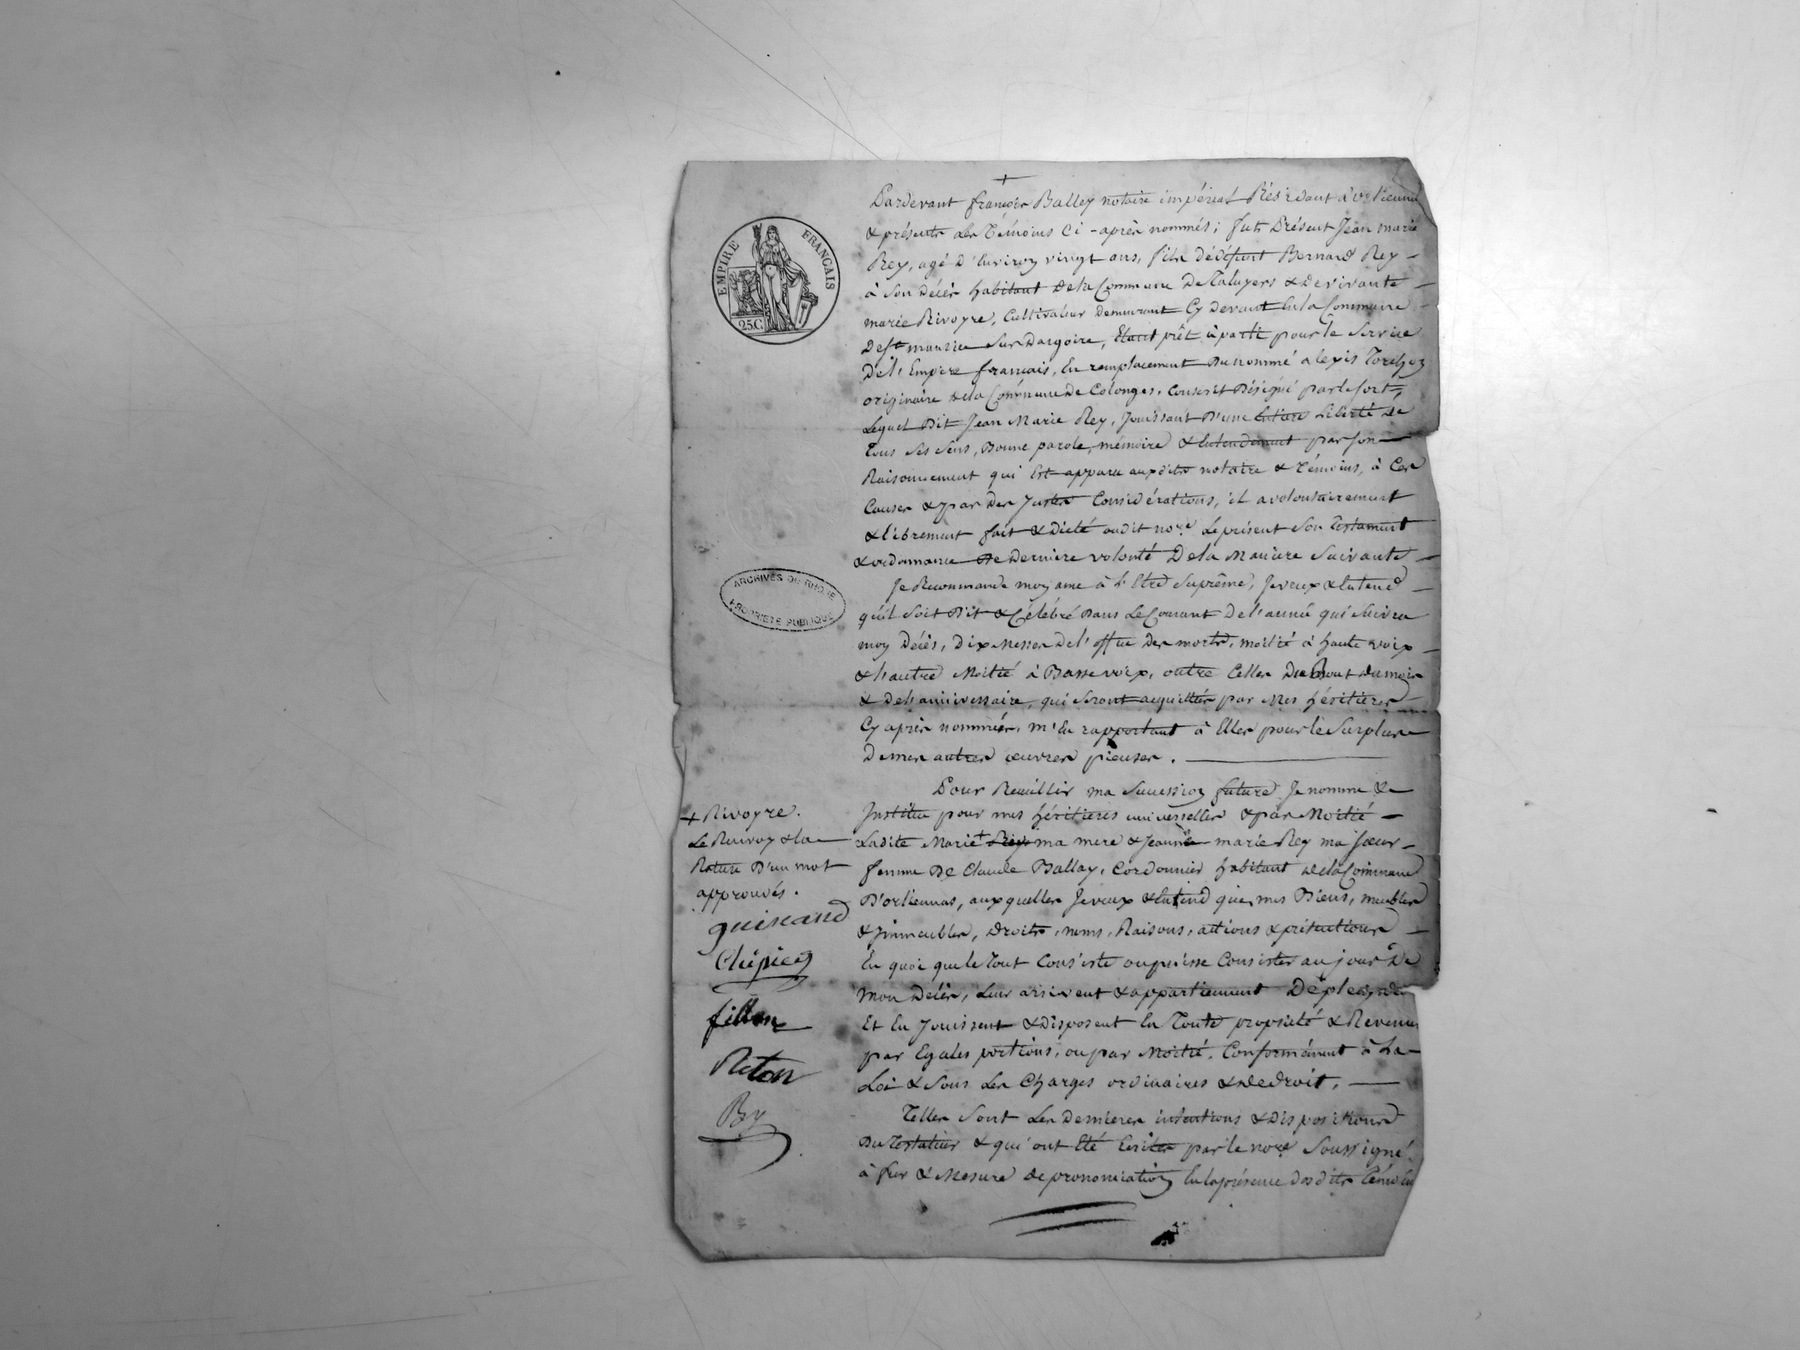 Pardevant françois Balley notaire impérial Résidant à orliennas
& présents les Témoins Ci-après nommés; fut Présent Jean marie
Rey, agé d'Environ vingt ans, fils de défunt Bernard Rey
à Son décès habitant de la Commune de Taluyers & de vivante
marie Rivoyre, Cultivateur demeurant Cy devant En la Commune
de St maurice Sur Dargoire, Etant prêt à partir pour le Service
de l'Empire français, En remplacement du nommé alexis
originaire de la Commune de Colonges, Conscrit Désigné par le sort,
Lequel Dit Jean Marie Rey, Jouissant D'une Entiere Liberté de
Tous Ses Sens, Bonne parole, mémoire & Entendement par son
Raisonnement qui Est apparu auxdits notaire & Témoins, à Ces
Causes & par des Justes Considérations, il a volontairement
& librement fait & dicté audit nore Le présent Son Testament
& ordonnance de derniere volonté De la Maniere Suivante
Je Recommande mon ame à l'Etre Suprême, Je veux & Entend
qu'il Soit Dit & Célébré Dans Le Courant De l'année qui Suivra
mon décès, Dix Messes de l'office des morts, moitié à haute voix
& l'autre Moitié à Basse voix, outre Celles Du Bout du mois
& de l'anniversaire, qui Seront acquittées par Mes héritieres
Cy après nommées, m'En rapportant à Elles pour le Surplus
de mes autres œuvres pieuses.
Pour Recueillir ma Succession future Je nomme &
Institue pour mes héritieres universelles & par Moitié
Ladite Marie + Rey ma mere & Jeanne marie Rey ma sœur
femme De Claude Ballay, Cordonnier habitant de la Commune
D'orliennas, auxquelles Je veux & Entend que mes Biens, meubles
& immeubles, droits, noms, Raisons, actions & prétentions
En quoi que le Tout Consiste ou puisse Consister au jour De
mon décès, Leur arrivent & appartiennent De plein
Et En Jouissent & disposent En Toute propriété & Revenus
par Egales portions, ou par Moitié, Conformément à La
Loi & Sous Les Charges ordinaires & de droit.
Telles Sont Les Dernieres intentions & dispositions
Du Testateur & qui ont Eté Ecrites par le nore Soussigné
à fur & Mesure de prononciation En la présence desdits Témoins
EMPIRE FRANÇAIS
25 C.
ARCHIVES DU RHÔNE
PROPRIÉTÉ PUBLIQUE
+ Rivoyre.
Le Renvoy & la
Rature D'un mot
approuvés.
guinand
fillion